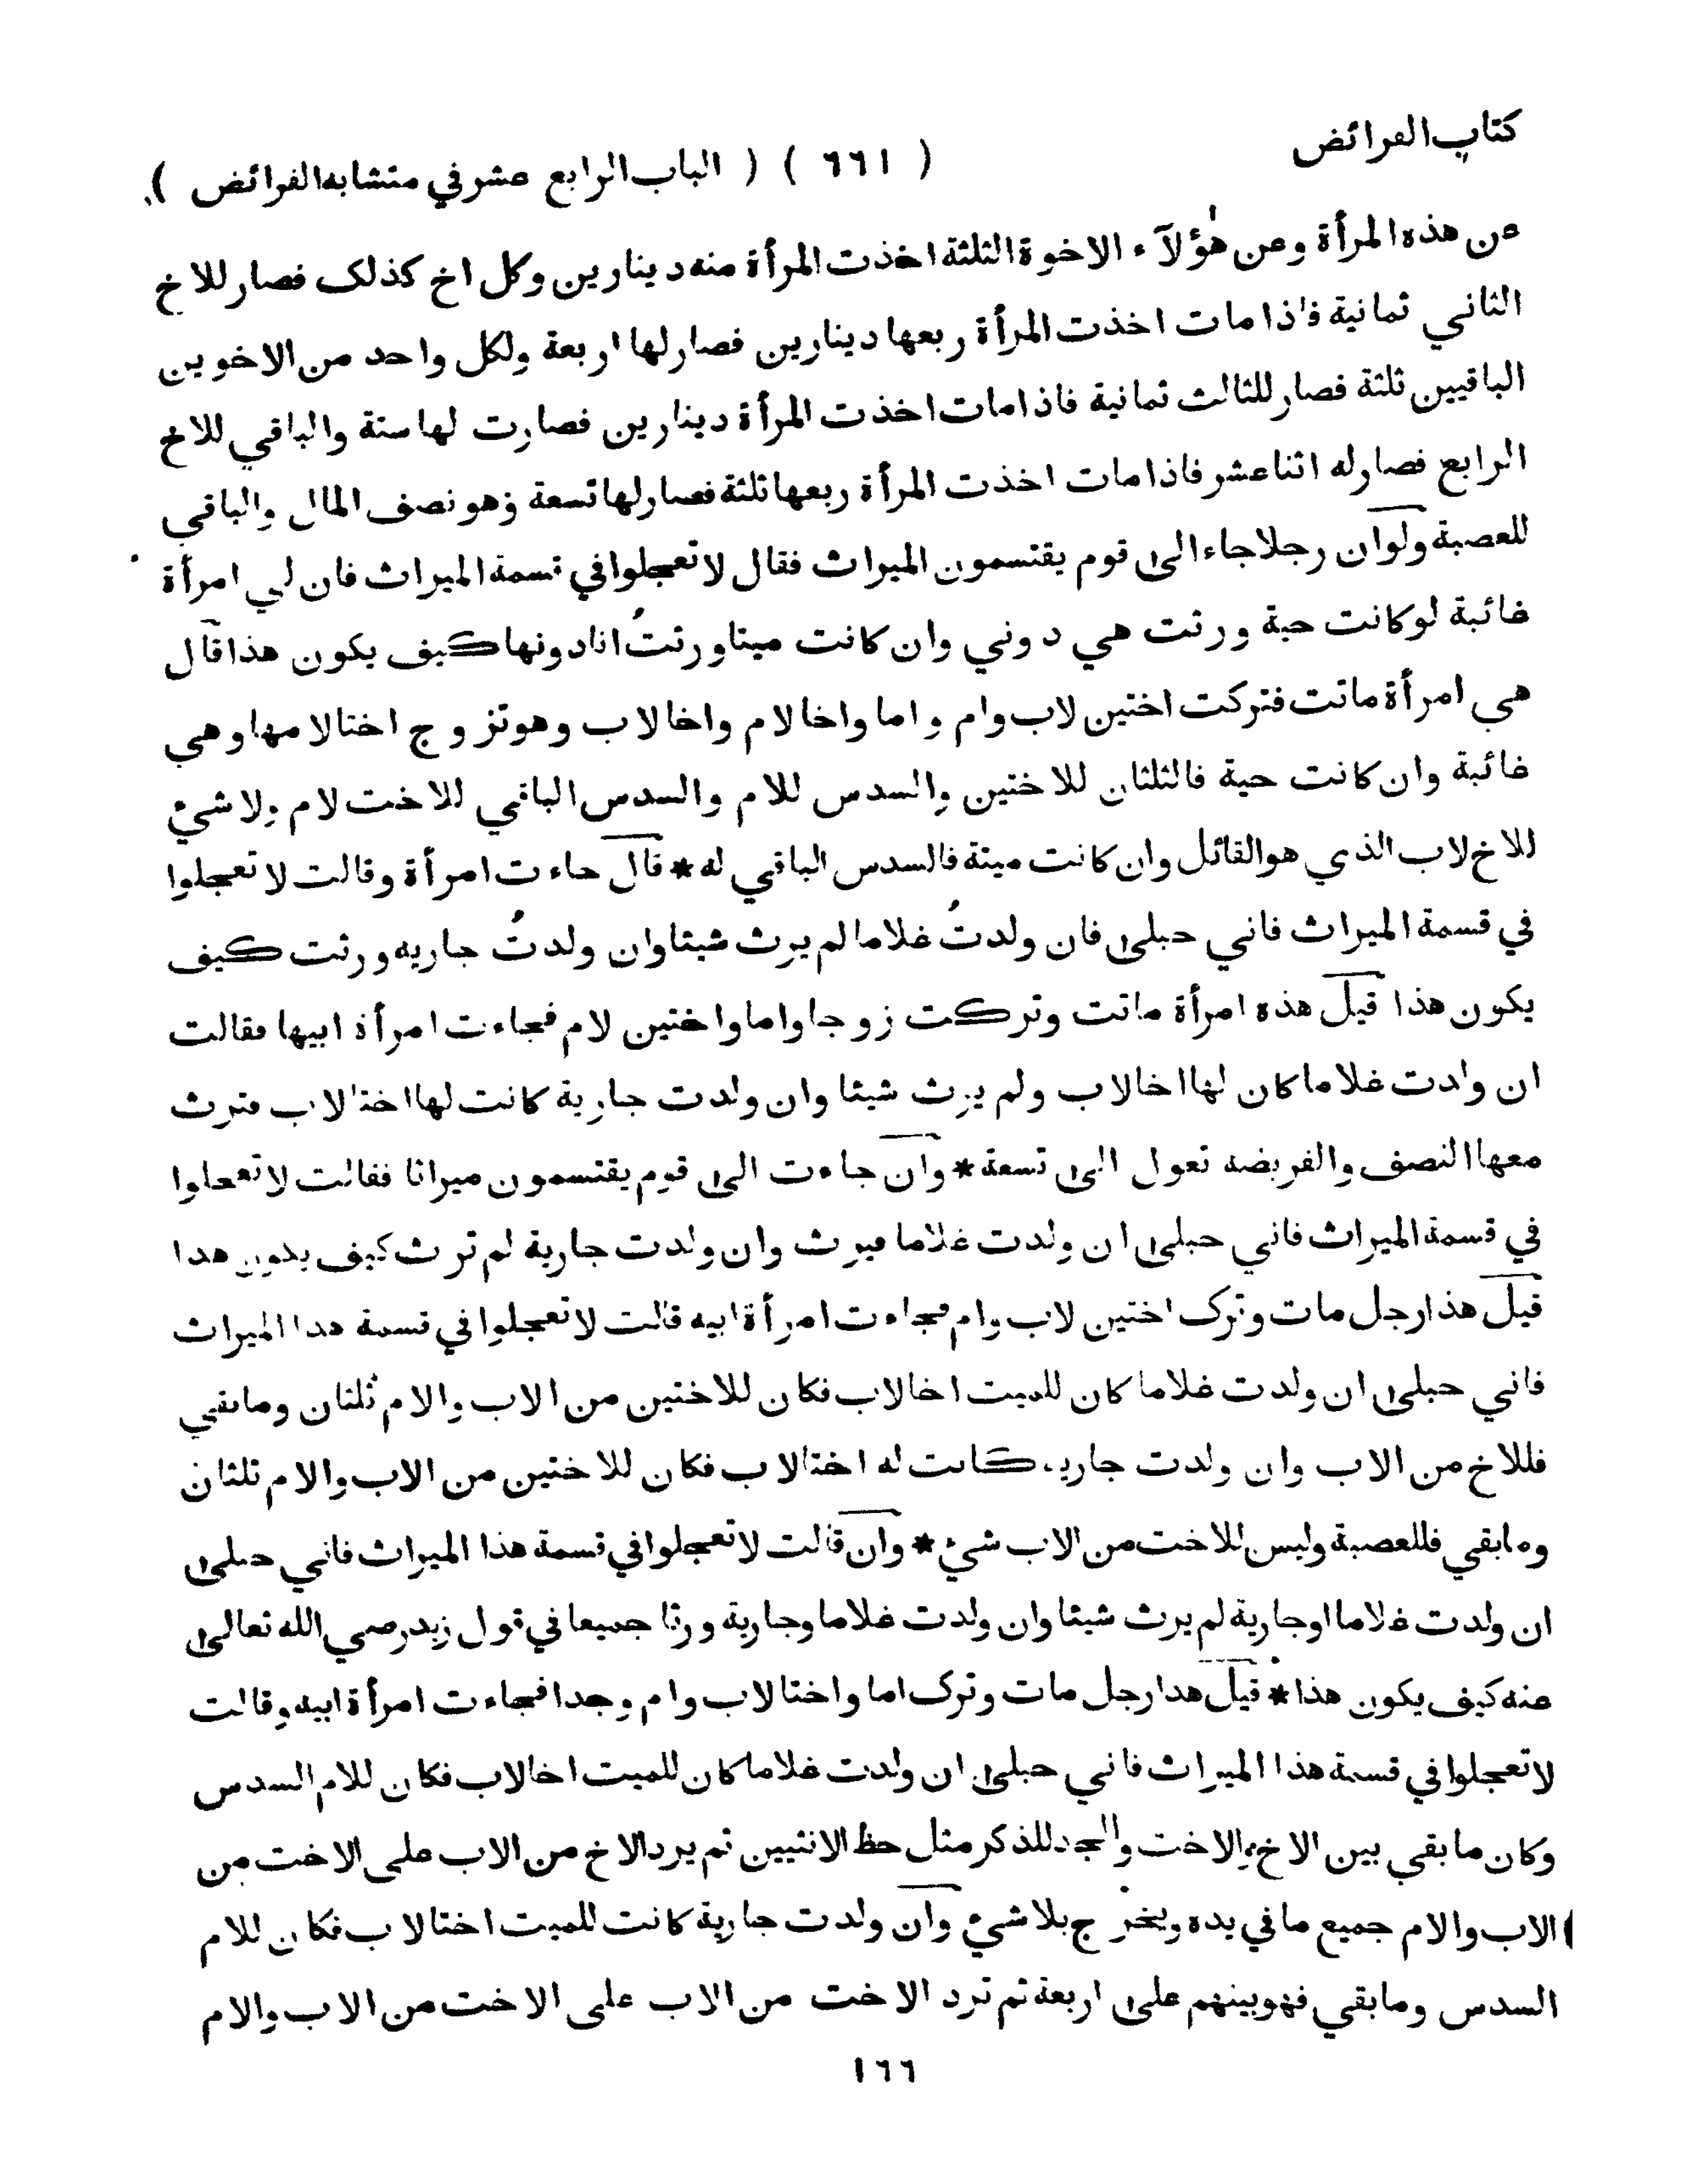 كتاب الفرائض
( ٦٦١ ) ( الباب الرابع عشر في متشابه الفرائض )
عن هذه المرأة وعن هٰؤلآء الاخوة الثلثة اخذت المرأة منه دينارين وكل اخ كذلك فصار للاخ
الثاني ثمانية فاذا مات اخذت المرأة ربعها دينارين فصار لها اربعة ولكل واحد من الاخوين
الباقيين ثلثة فصار للثالث ثمانية فاذا مات اخذت المرأة دينارين فصارت لها ستة والباقي للاخ
الرابع فصار له اثنا عشر فاذا مات اخذت المرأة ربعها ثلثة فصار لها تسعة وهو نصف المال والباقي
للعصبة ولو ان رجلا جاء الى قوم يقتسمون الميراث فقال لا تعجلوا في قسمة الميراث فان لي امرأة
غائبة لو كانت حية ورثت هي دوني وان كانت ميتا ورثتُ انا دونها كيف يكون هذا قال
هي امرأة ماتت فتركت اختين لاب وام واما واخا لام واخا لاب وهو تزوج اختا لامها وهي
غائبة وان كانت حية فالثلثان للاختين والسدس للام والسدس الباقي للاخت لام ولا شيء
للاخ لاب الذي هو القائل وان كانت ميتة فالسدس الباقي له * قال جاءت امرأة وقالت لا تعجلوا
في قسمة الميراث فاني حبلى فان ولدتُ غلاما لم يرث شيئا وان ولدتُ جاريه ورثت كيف
يكون هذا قيل هذه امرأة ماتت وتركت زوجا واما واختين لام فجاءت امرأة ابيها فقالت
ان ولدت غلاما كان لها اخا لاب ولم يرث شيئا وان ولدت جارية كانت لها اختا لاب فترث
معها النصف والفريضه تعول الى تسعة * وان جاءت الى قوم يقتسمون ميراثا فقالت لا تعجلوا
في قسمة الميراث فاني حبلى ان ولدت غلاما فيرث وان ولدت جارية لم ترث كيف يكون هذا
قيل هذا رجل مات وترك اختين لاب وام فجاءت امرأة ابيه قالت لا تعجلوا في قسمة هذا الميراث
فاني حبلى ان ولدت غلاما كان للميت اخا لاب فكان للاختين من الاب والام ثلثان وما بقي
فللاخ من الاب وان ولدت جارية كانت له اختا لاب فكان للاختين من الاب والام ثلثان
وما بقي فللعصبة وليس للاخت من الاب شيء * وان قالت لا تعجلوا في قسمة هذا الميراث فاني حبلى
ان ولدت غلاما او جارية لم يرث شيئا وان ولدت غلاما وجارية ورثا جميعا في قول زيد رضي الله تعالى
عنه كيف يكون هذا * قيل هذا رجل مات وترك اما واختا لاب وام وجدا فجاءت امرأة ابيه وقالت
لا تعجلوا في قسمة هذا الميراث فاني حبلى ان ولدت غلاما كان للميت اخا لاب فكان للام السدس
وكان ما بقي بين الاخ والاخت والجد للذكر مثل حظ الانثيين ثم يرد الاخ من الاب على الاخت من
الاب والام جميع ما في يده ويخرج بلا شيء وان ولدت جارية كانت للميت اختا لاب فكان للام
السدس وما بقي فهو بينهم على اربعة ثم ترد الاخت من الاب على الاخت من الاب والام
١٦٦